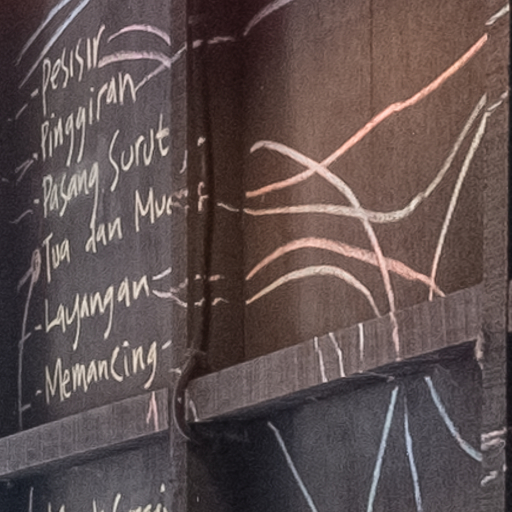 - Pesisir
- Pinggiran
- Pasang Surut
- Tua dan
- Layangan -
- Memancing -